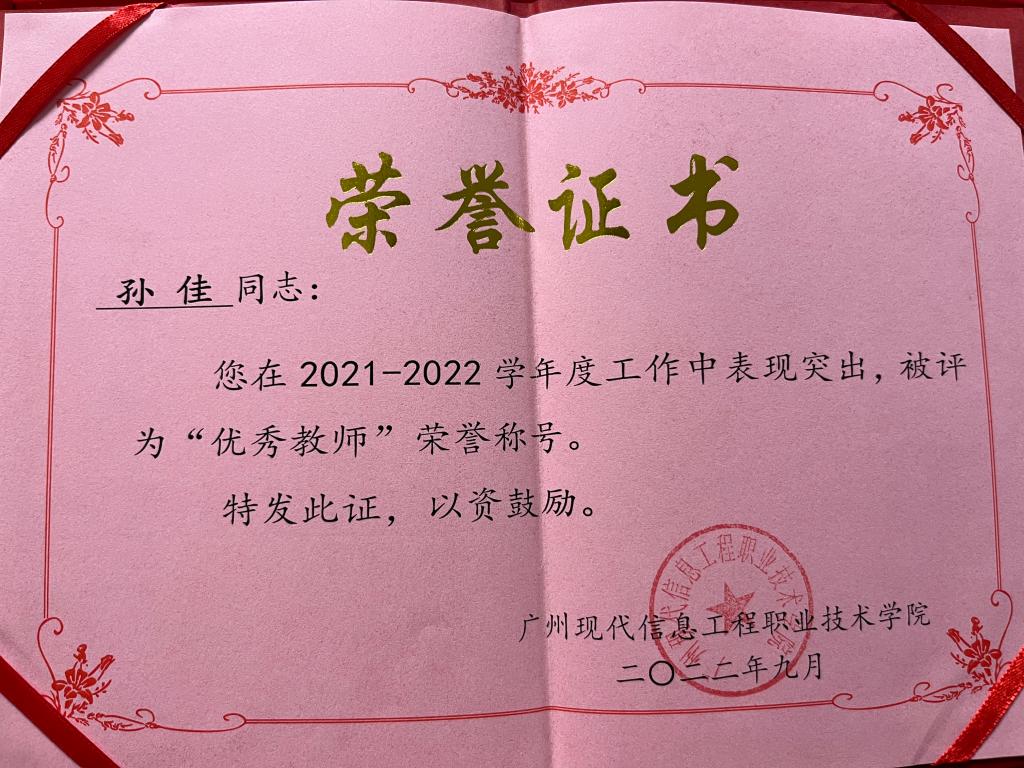 荣誉证书
孙 佳 同志：
您在 2021-2022 学年度工作中表现突出，被评
为“优秀教师”荣誉称号。
特发此证，以资鼓励。
广州现代信息工程职业技术学院
广州现代信息工程职业技术学院
二〇二二年九月